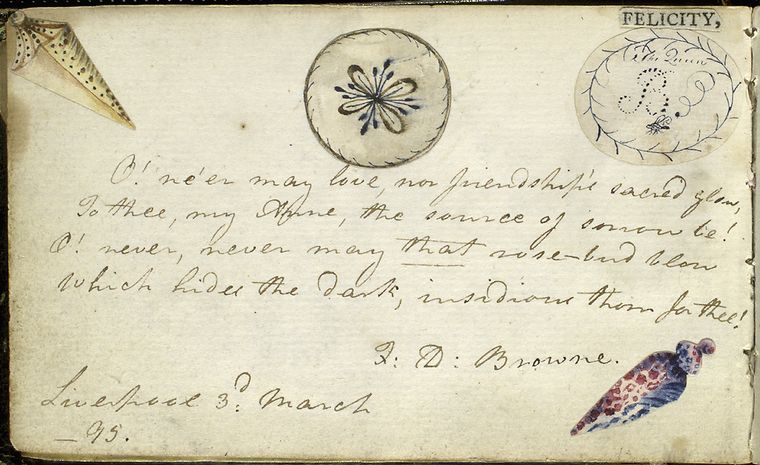 FELICITY,
The Queen
B
O! ne'er may love, nor friendship's sacred glow,
To thee, my Anne, the source of sorrow be!
O! never, never may that rose-bud blow
Which hides the dark, insidious thorn for thee!
F: D: Browne.
Liverpool 3d. March
– 95.